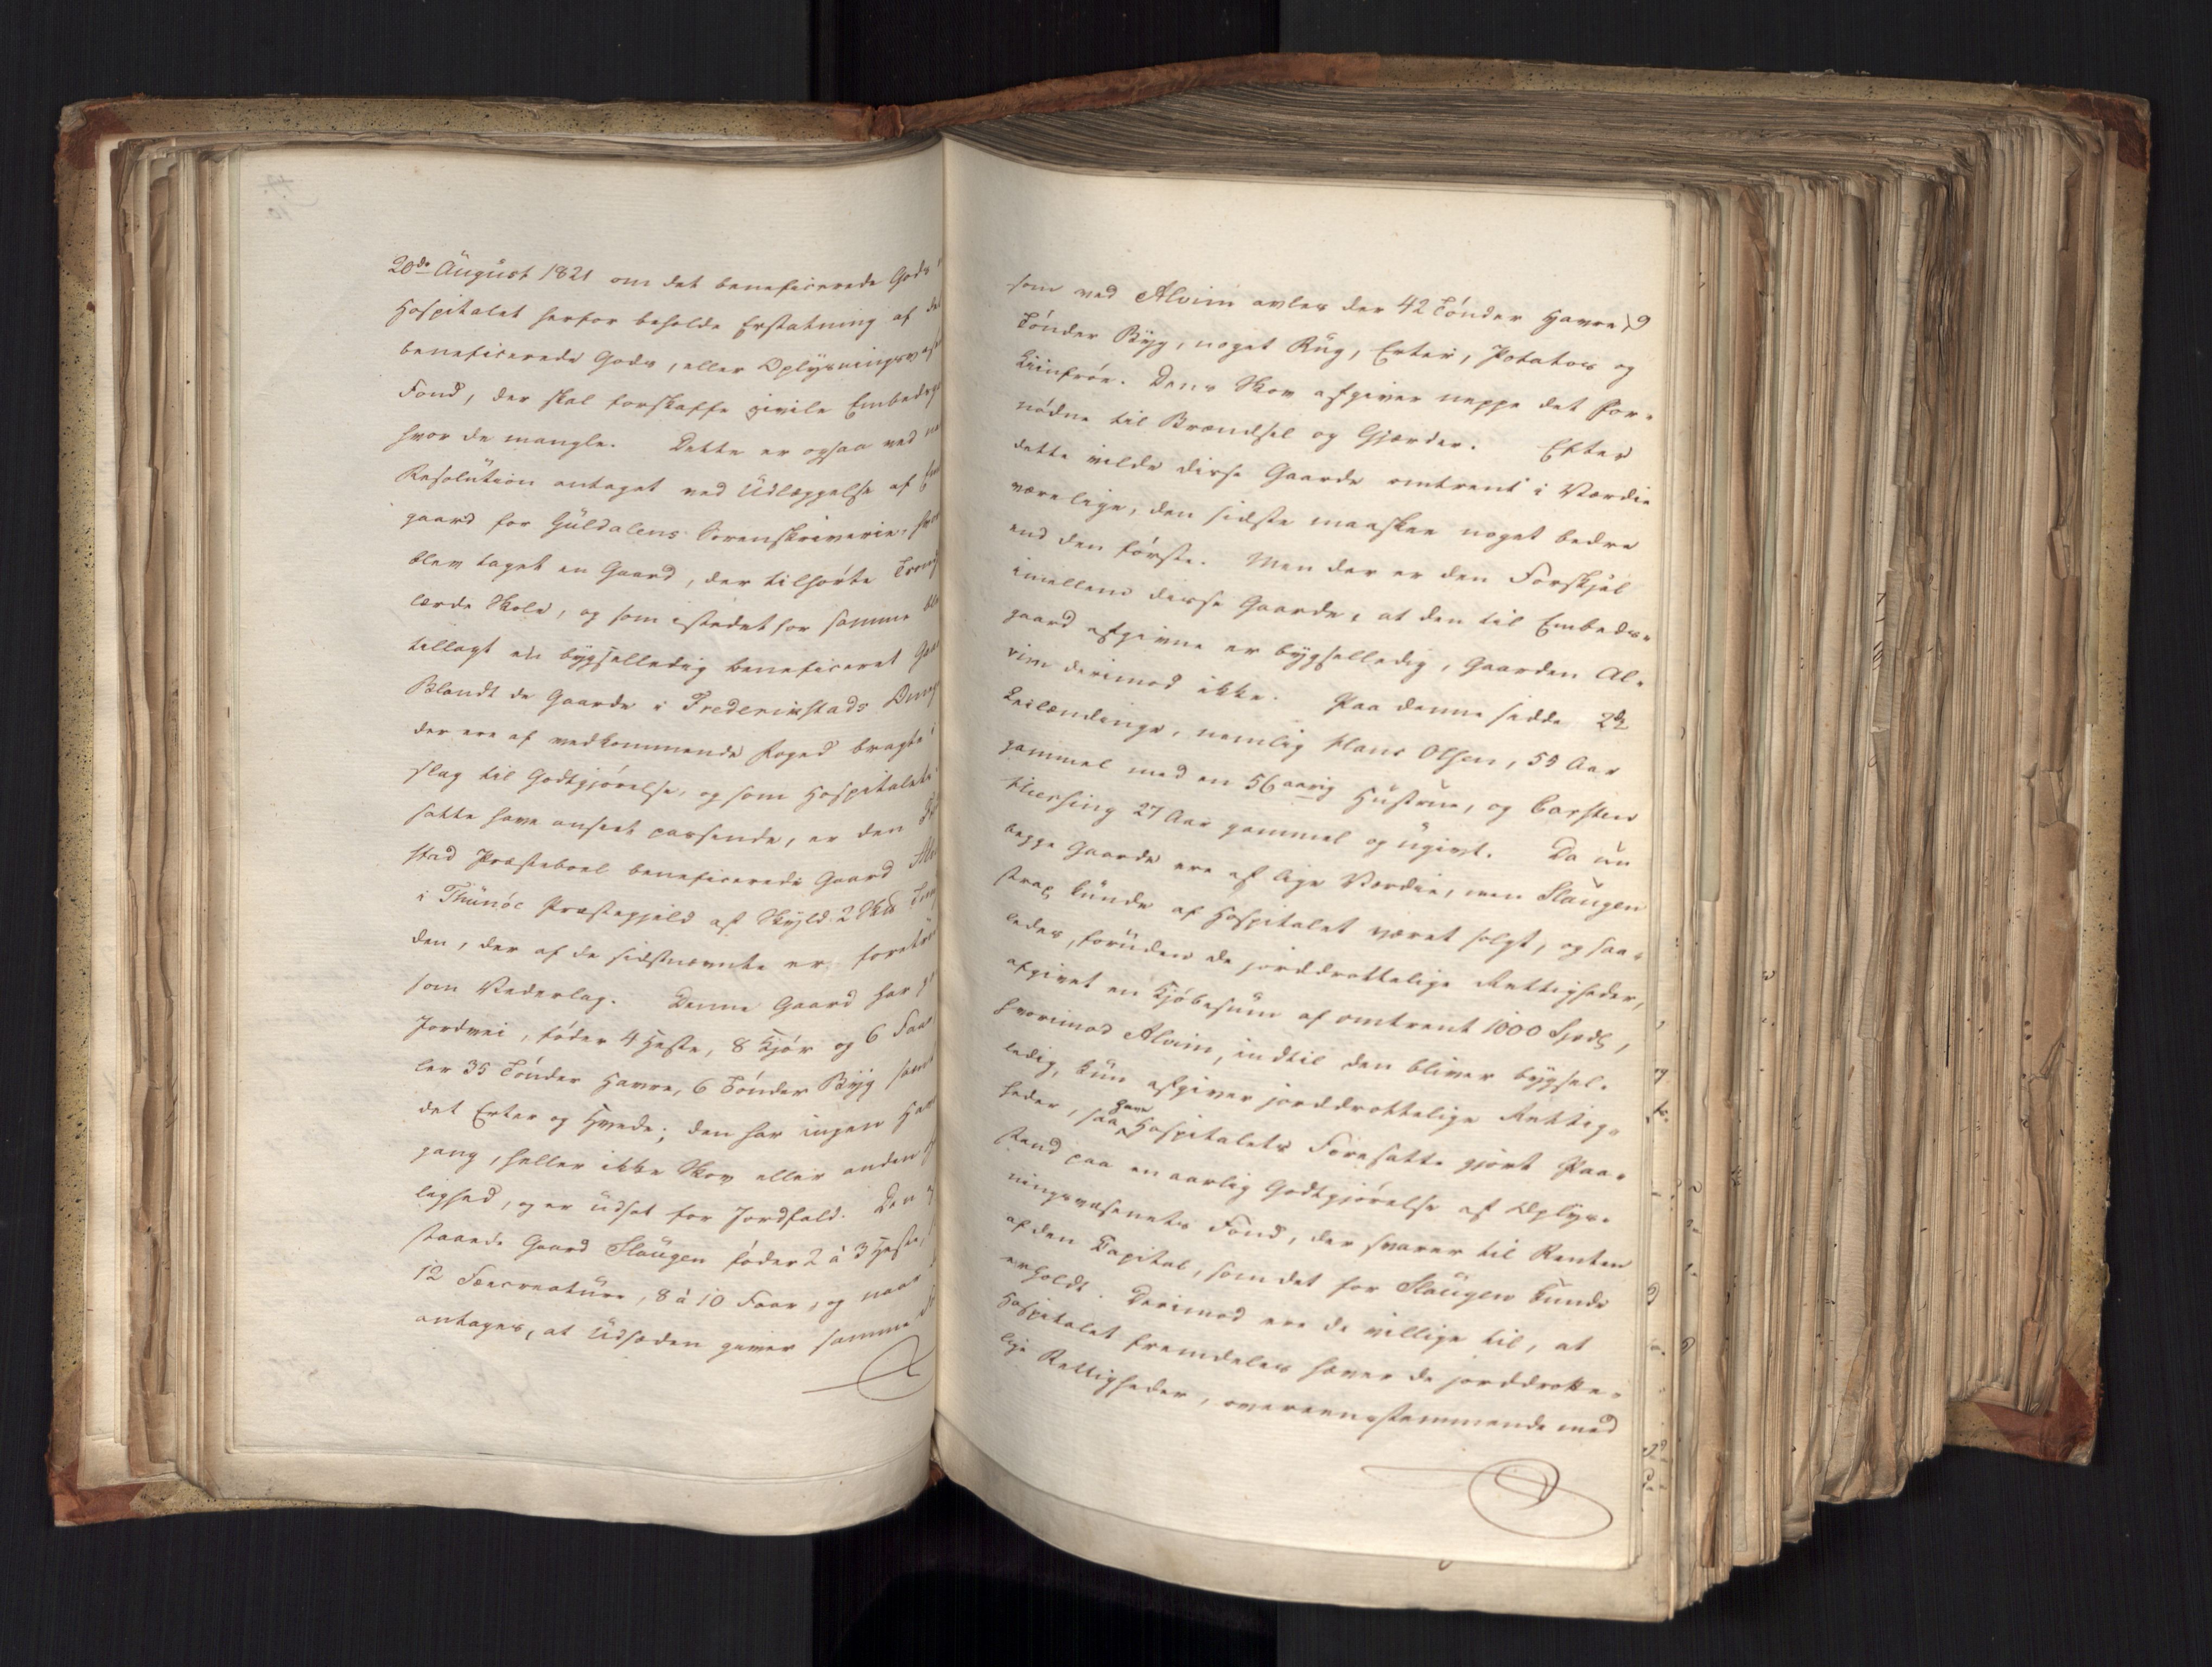 20de August 1821 om det beneficerede Gods
Hospitalet herfor beholde Erstatning af det
beneficerede Gods, eller Oplysningsvæs
Fond, der skal forskaffe civile Embeds
hvor de mangle. Dette er ogsaa ved
Resolution antaget ved Udlæggelse af
gaard for Guldalens Sorenskriverie, hvor
blev taget en Gaard, der tilhørte Trondh
lærde Skole, og som istedet for samme blev
tillagt en bygselledig beneficeret Gaar
Blandt de Gaarde i Frederikstads Omeg
der ere af vedkommende Foged bragte i
slag til Godtgjørelse, og som Hospitalets
satte have anseet passende, er den
stad Præsteboel beneficerede Gaard Alv
i Thunøe Præstegjeld af Skyld 2 Skd
den, der af de sidstnævnte er foretru
som Vederlag. Denne Gaard har
Jordvei, føder 4 Heste, 8 Kjør og 6 Faar
ler 35 Tønder Havre, 6 Tønder Byg samt
det Erter og Hvede; den har ingen Hav
gang, heller ikke Skov eller anden
lighed, og er udsat for Jordfald. Den
staaende Gaard Slaugen føder 2 à 3 Heste,
12 Fæecreature, 8 à 10 Faar, og naar
antages, at Udsæden giver samme
som ved Alvim avles der 42 Tønder Havre, 9
Tønder Byg, noget Rug, Erter, Potatos og
Liinfrøe. Dens Skov afgiver neppe det For-
nødne til Brændsel og Gjærder. Efter
dette vilde disse Gaarde omtrent i Værdie
være lige, den sidste maaskee noget bedre
end den første. Men der er den Forskjel
imellem disse Gaarde, at den til Embeds-
gaard afgivne er bygselledig, Gaarden Al-
vim derimod ikke. Paa denne sidde 2de
Leilændinge, nemlig Hans Olsen, 55 Aar
gammel med en 56 aarig Hustrue, og Carsten
Kiersing 27 Aar gammel og ugivt. Da nu
begge Gaarde ere af lige Værdie, men Slaugen
strax kunde af Hospitalet været solgt, og saa-
ledes, foruden de jorddrottelige Rettigheder,
afgivet en Kjøbesum af omtrent 1000 Spd,
hvorimod Alvim, indtil den bliver bygsel-
ledig, kun afgiver jorddrottelige Rettig-
heder, saa have Hospitalets Foresatte gjort Paa-
stand paa en aarlig Godtgjørelse af Oplys-
ningsvæsenets Fond, der svarer til Renten
af den Kapital, som det for Slaugen kunde
erholdt. Derimod ere de villige til, at
Hospitalet fremdeles hæver de jorddrotte-
lige Rettigheder, overeensstemmende med